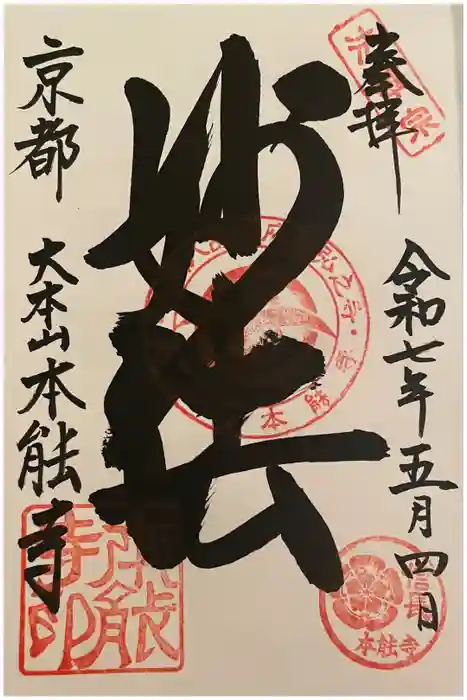 奉拝
令和七年五月四日
妙法
京都
大本山本能寺
本能寺
本能寺印